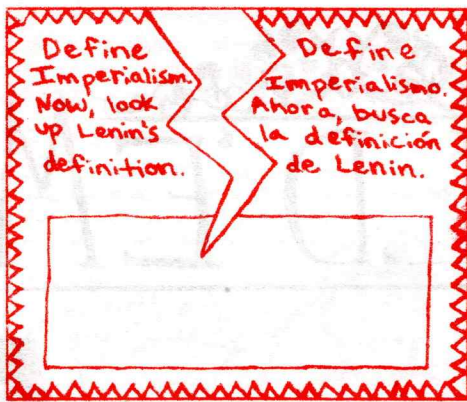 Define
Imperialism.
Now, look
up Lenin's
definition.
Define
Imperialismo.
Ahora, busca
la definición
de Lenin.